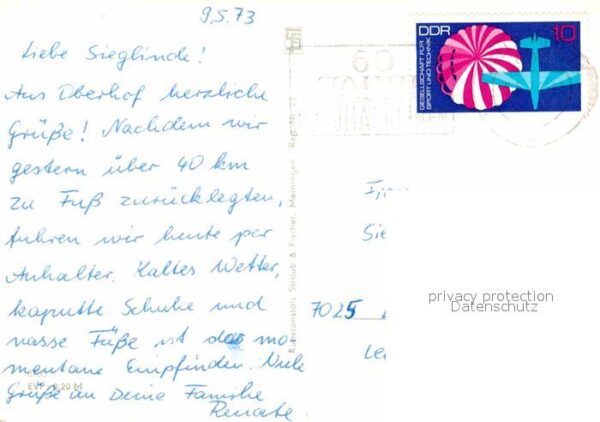 9.5.73
Liebe Sieglinde!
Aus Oberhof herzliche
Grüße! Nachdem wir
gestern über 40 km
zu Fuß zurücklegten,
fuhren wir heute per
Anhalter. Kaltes Wetter,
kaputte Schuhe und
nasse Füße ist das mo-
mentane Empfinden. Viele
Grüße an Deine Familie
Renate
EVP 0,20 M
Straub & Fischer, Meiningen
DDR 10
GESELLSCHAFT FÜR
SPORT UND TECHNIK
60
Sie
7025
Le
privacy protection
Datenschutz